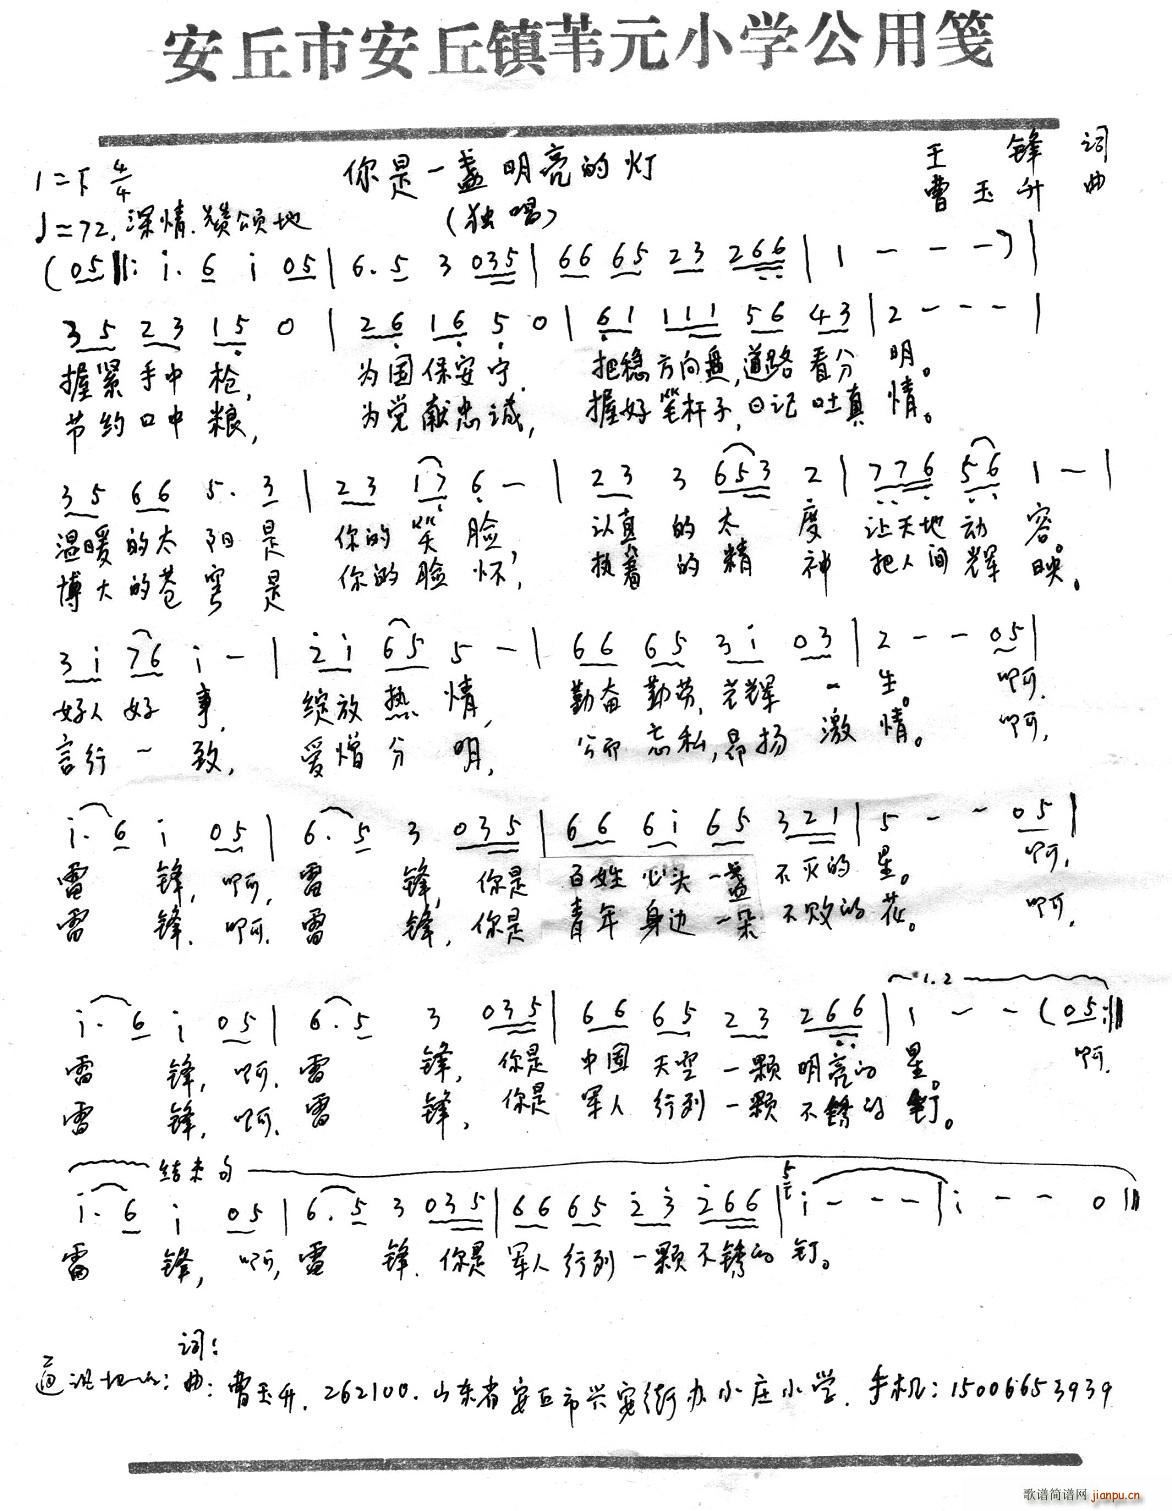 安丘市安丘镇苇元小学公用笺
1=F 4/4 你是一盏明亮的灯 王锋 词
♩=72, 深情.赞颂地 (独唱) 曹玉升 曲
(05‖: i. 6 i 05 | 6. 5 3 035 | 66 65 23 266 | 1 - - -) |
35 23 15 0 | 26 16 5 0 | 61 111 56 43 | 2 - - - |
握紧手中枪, 为国保安宁. 把稳方向盘,道路看分明。
节约口中粮, 为党献忠诚, 握好笔杆子,日记吐真情。
35 66 5. 3 | 23 17 6 - | 23 3 653 2 | 776 56 1 - |
温暖的太阳是 你的笑脸, 认真的太度 让天地动容。
博大的苍穹是 你的脸怀, 执着的精神 把人间辉映。
3i 76 i - | 2i 65 5 - | 66 65 3i 03 | 2 - - 05 |
好人好事, 绽放热情, 勤奋勤劳,光辉一生。 啊.
言行一致, 爱憎分明, 公而忘私,昂扬激情。 啊,
i. 6 i 05 | 6. 5 3 035 | 66 6i 65 321 | 5 - - 05 |
雷锋,啊,雷锋,你是百姓心头一盏不灭的星。 啊,
雷锋.啊.雷锋,你是青年身边一朵不败的花。 啊,
1.2
i. 6 i 05 | 6. 5 3 035 | 66 65 23 266 | 1 - - (05:‖
雷锋,啊.雷锋,你是中国天空一颗明亮的星。 啊.
雷锋,啊.雷锋,你是军人行列一颗不锈的钉。
结束句
i. 6 i 05 | 6. 5 3 035 | 66 65 23 266 | 5 i - - - | i - - 0 ‖
雷锋,啊,雷锋.你是军人行列一颗不锈的钉。
词:
通讯地址: 曲: 曹玉升. 262100. 山东省安丘市兴安街办小庄小学. 手机: 15006653939
歌谱简谱网 jianpu.cn